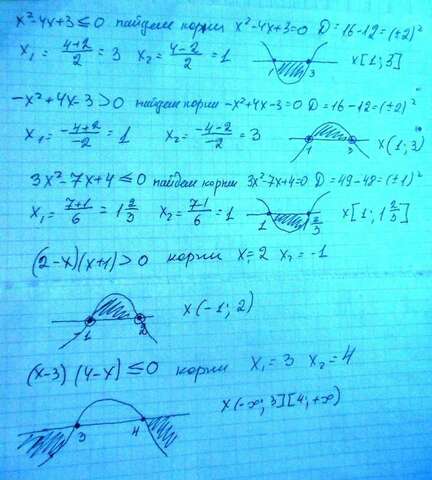 x²-4x+3≤0 найдем корни x²-4x+3=0 D=16-12=(±2)²
x₁ = (4+2)/2 = 3 x₂ = (4-2)/2 = 1 1 3 x[1;3]
-x²+4x-3>0 найдем корни -x²+4x-3=0 D=16-12=(±2)²
x₁ = (-4+2)/-2 = 1 x₂ = (-4-2)/-2 = 3 1 3 x(1;3)
3x²-7x+4≤0 найдем корни 3x²-7x+4=0 D=49-48=(±1)²
x₁ = (7+1)/6 = 1 2/3 x₂ = (7-1)/6 = 1 1 1 2/3 x[1;1 2/3]
(2-x)(x+1)>0 корни x=2 x₂=-1
-1 2 x(-1;2)
(x-3)(4-x)≤0 корни x₁=3 x₂=4
3 4 x(-∞;3][4;+∞)